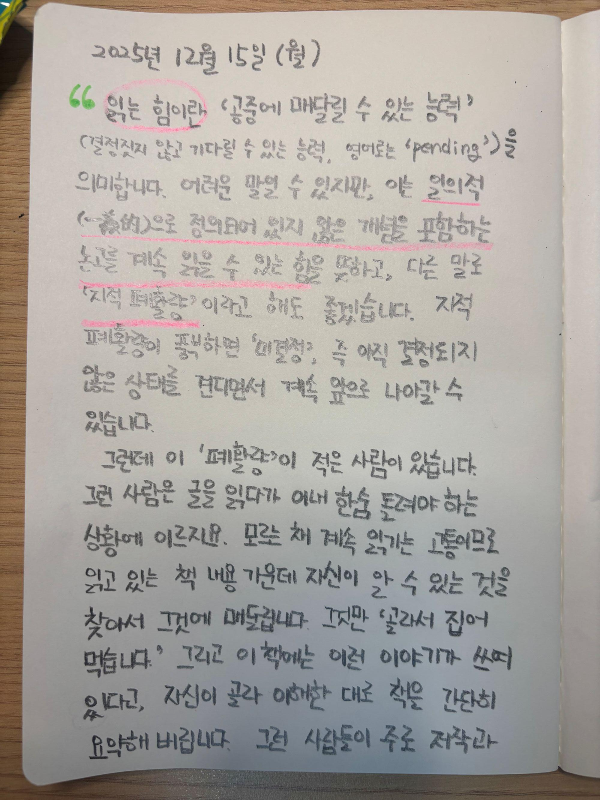 2025년 12월 15일 (월)
“ 읽는 힘이란 '공중에 매달릴 수 있는 능력'
(결정짓지 않고 기다릴 수 있는 능력, 영어로는 'pending')을
의미합니다. 어려운 말일 수 있지만, 이는 일의적
(一義的)으로 정의되어 있지 않은 개념을 포함하는
논고를 계속 읽을 수 있는 힘을 뜻하고, 다른 말로
'지적 폐활량'이라고 해도 좋겠습니다. 지적
폐활량이 풍부하면 '미결정', 즉 아직 결정되지
않은 상태를 견디면서 계속 앞으로 나아갈 수
있습니다.
그런데 이 '폐활량'이 적은 사람이 있습니다.
그런 사람은 글을 읽다가 이내 한숨 돌려야 하는
상황에 이르지요. 모르는 채 계속 읽기는 고통이므로
읽고 있는 책 내용 가운데 자신이 알 수 있는 것을
찾아서 그것에 매달립니다. 그것만 '골라서 집어
먹습니다.' 그리고 이 책에는 이런 이야기가 쓰여
있다고, 자신이 골라 이해한 대로 책을 간단히
요약해 버립니다. 그런 사람들이 주로 저작과